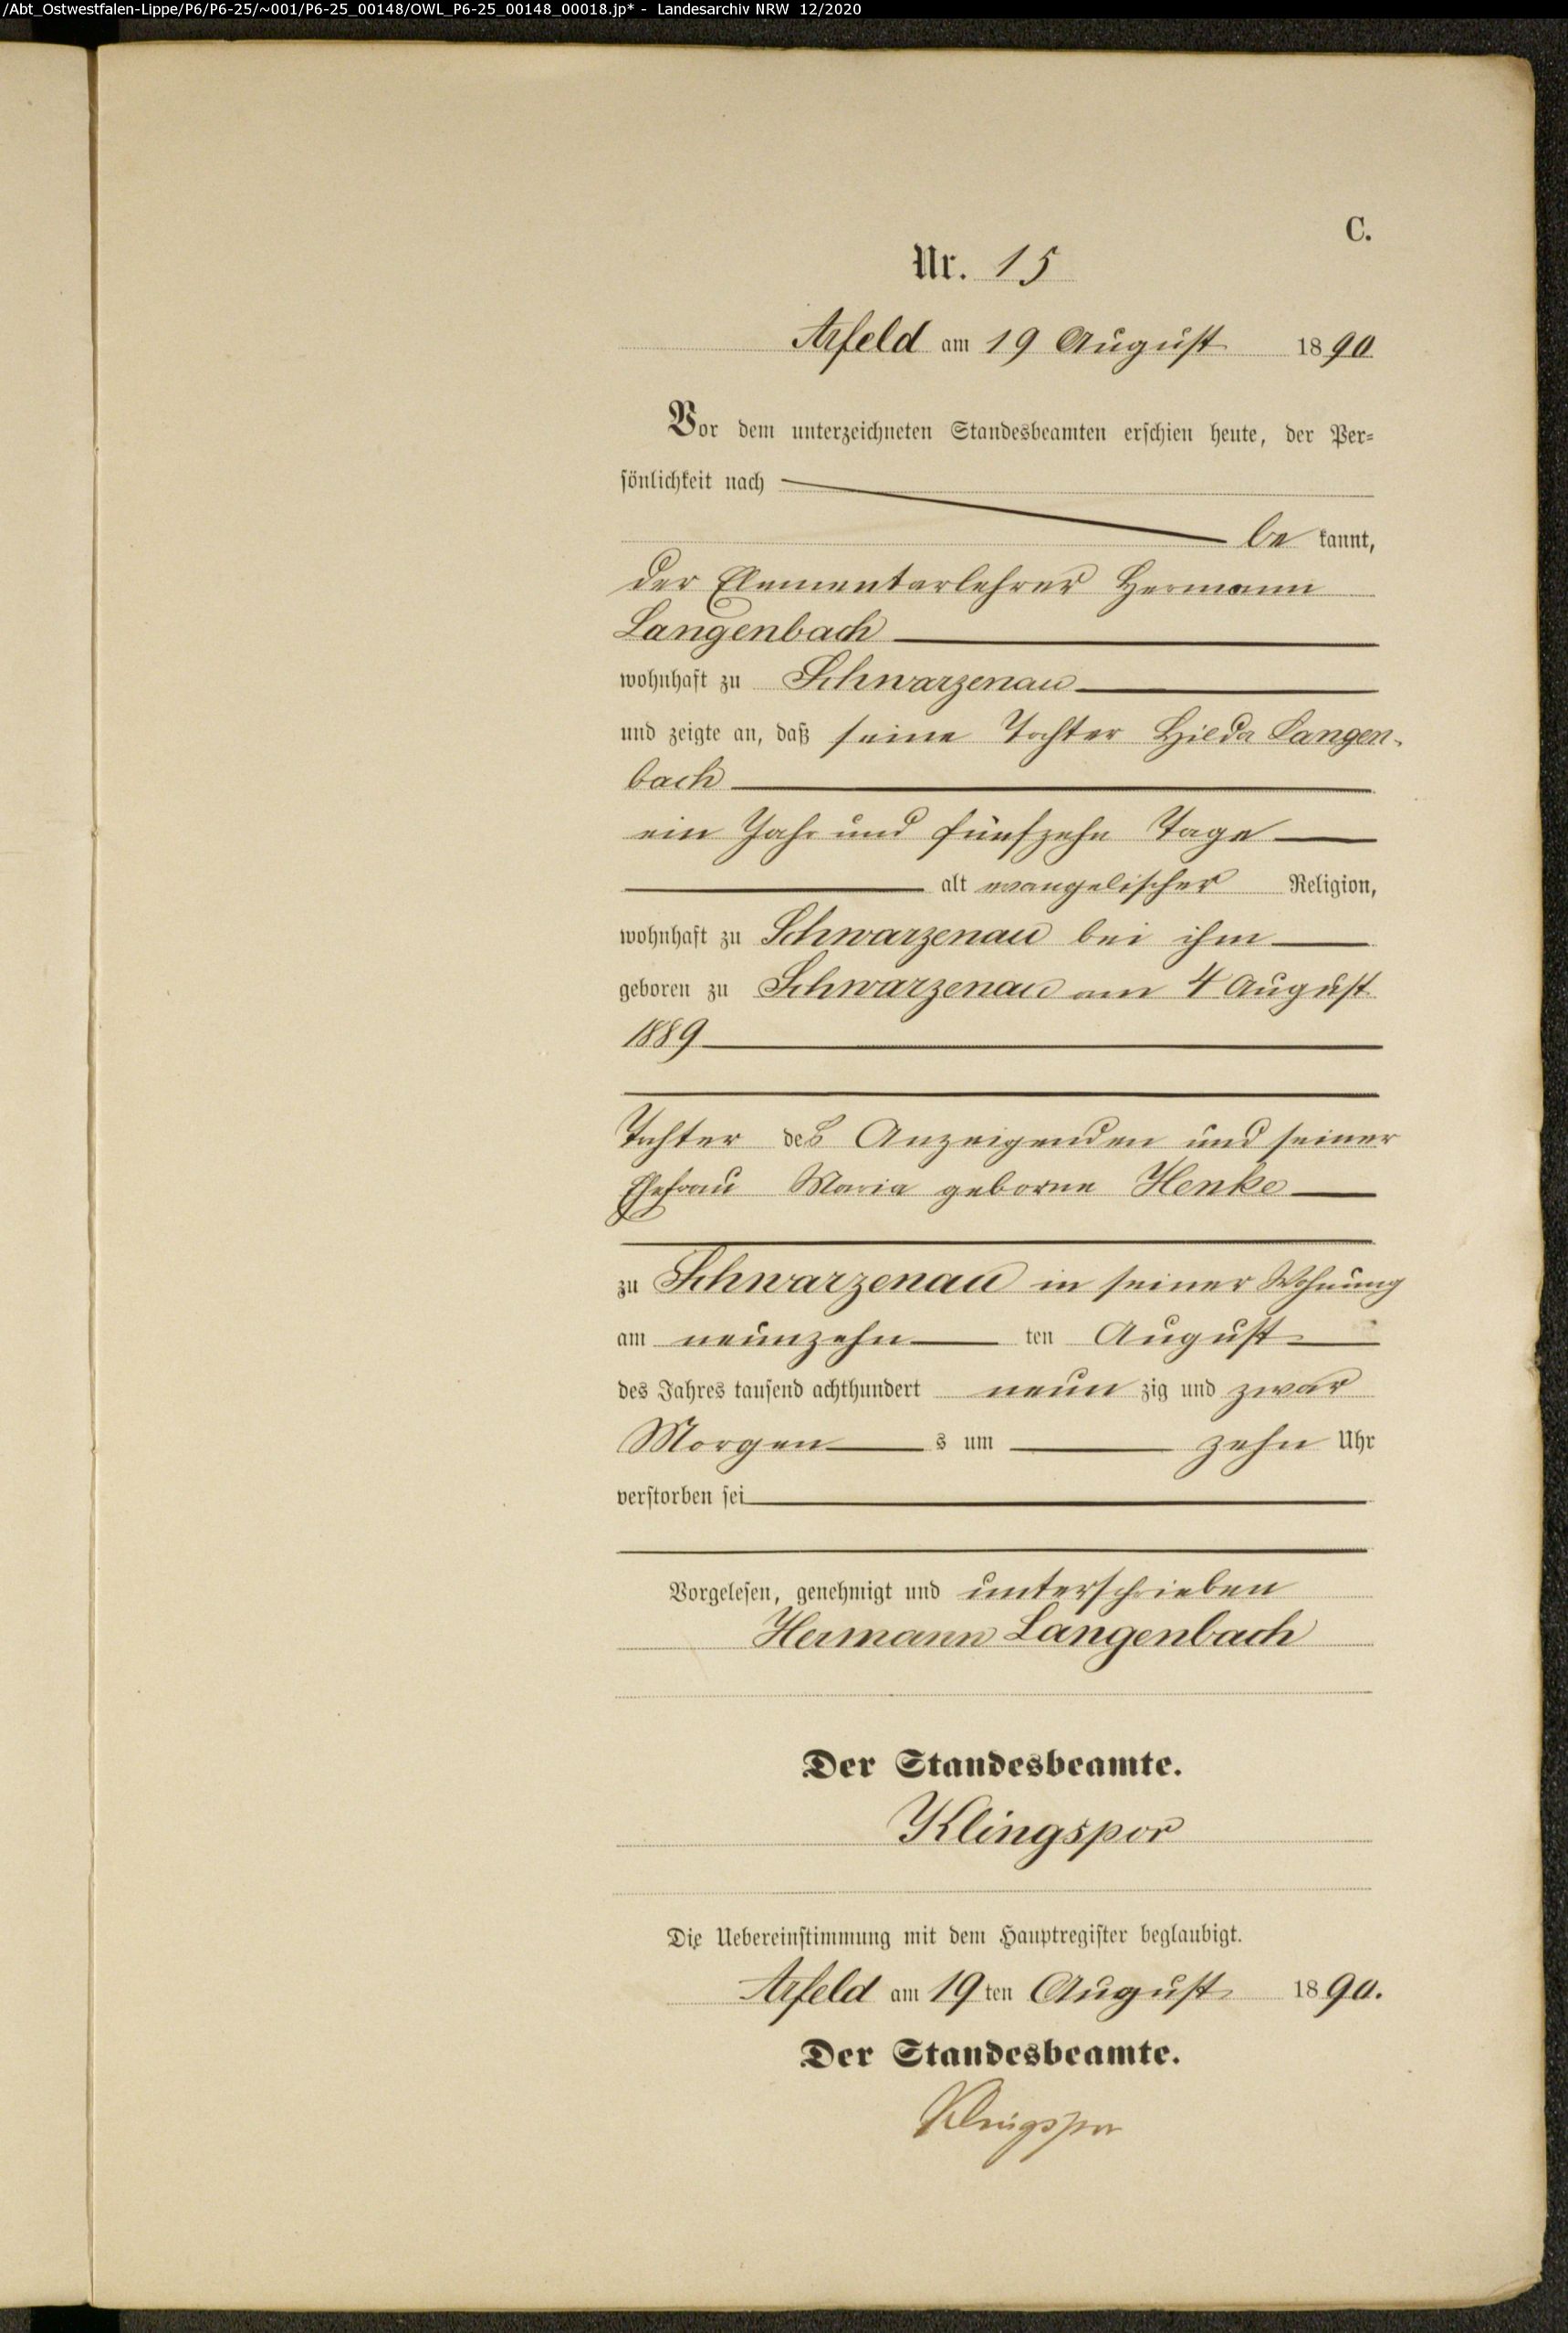 /Abt_Ostwestfalen-Lippe/P6/P6-25/~001/P6-25_00148/OWL_P6-25_00148_00018.jp* - Landesarchiv NRW 12/2020
C.
Nr. 15
Arfeld am 19 August 1890
Vor dem unterzeichneten Standesbeamten erschien heute, der Per=
sönlichkeit nach
be kannt,
der Elementarlehrer Hermann
Langenbach
wohnhaft zu Schwarzenau
und zeigte an, daß seine Tochter Hilda Langen-
bach
ein Jahr und fünfzehn Tage
alt evangelischer Religion,
wohnhaft zu Schwarzenau bei ihm
geboren zu Schwarzenau am 4 August
1889
Tochter des Anzeigenden und seiner
Ehefrau Maria geborne Henke
zu Schwarzenau in seiner Wohnung
am neunzehn ten August
des Jahres tausend achthundert neun zig und zwar
Morgen s um zehn Uhr
verstorben sei
Vorgelesen, genehmigt und unterschrieben
Hermann Langenbach
Der Standesbeamte.
Klingspor
Die Uebereinstimmung mit dem Hauptregister beglaubigt.
Arfeld am 19 ten August 1890.
Der Standesbeamte.
Klingspor